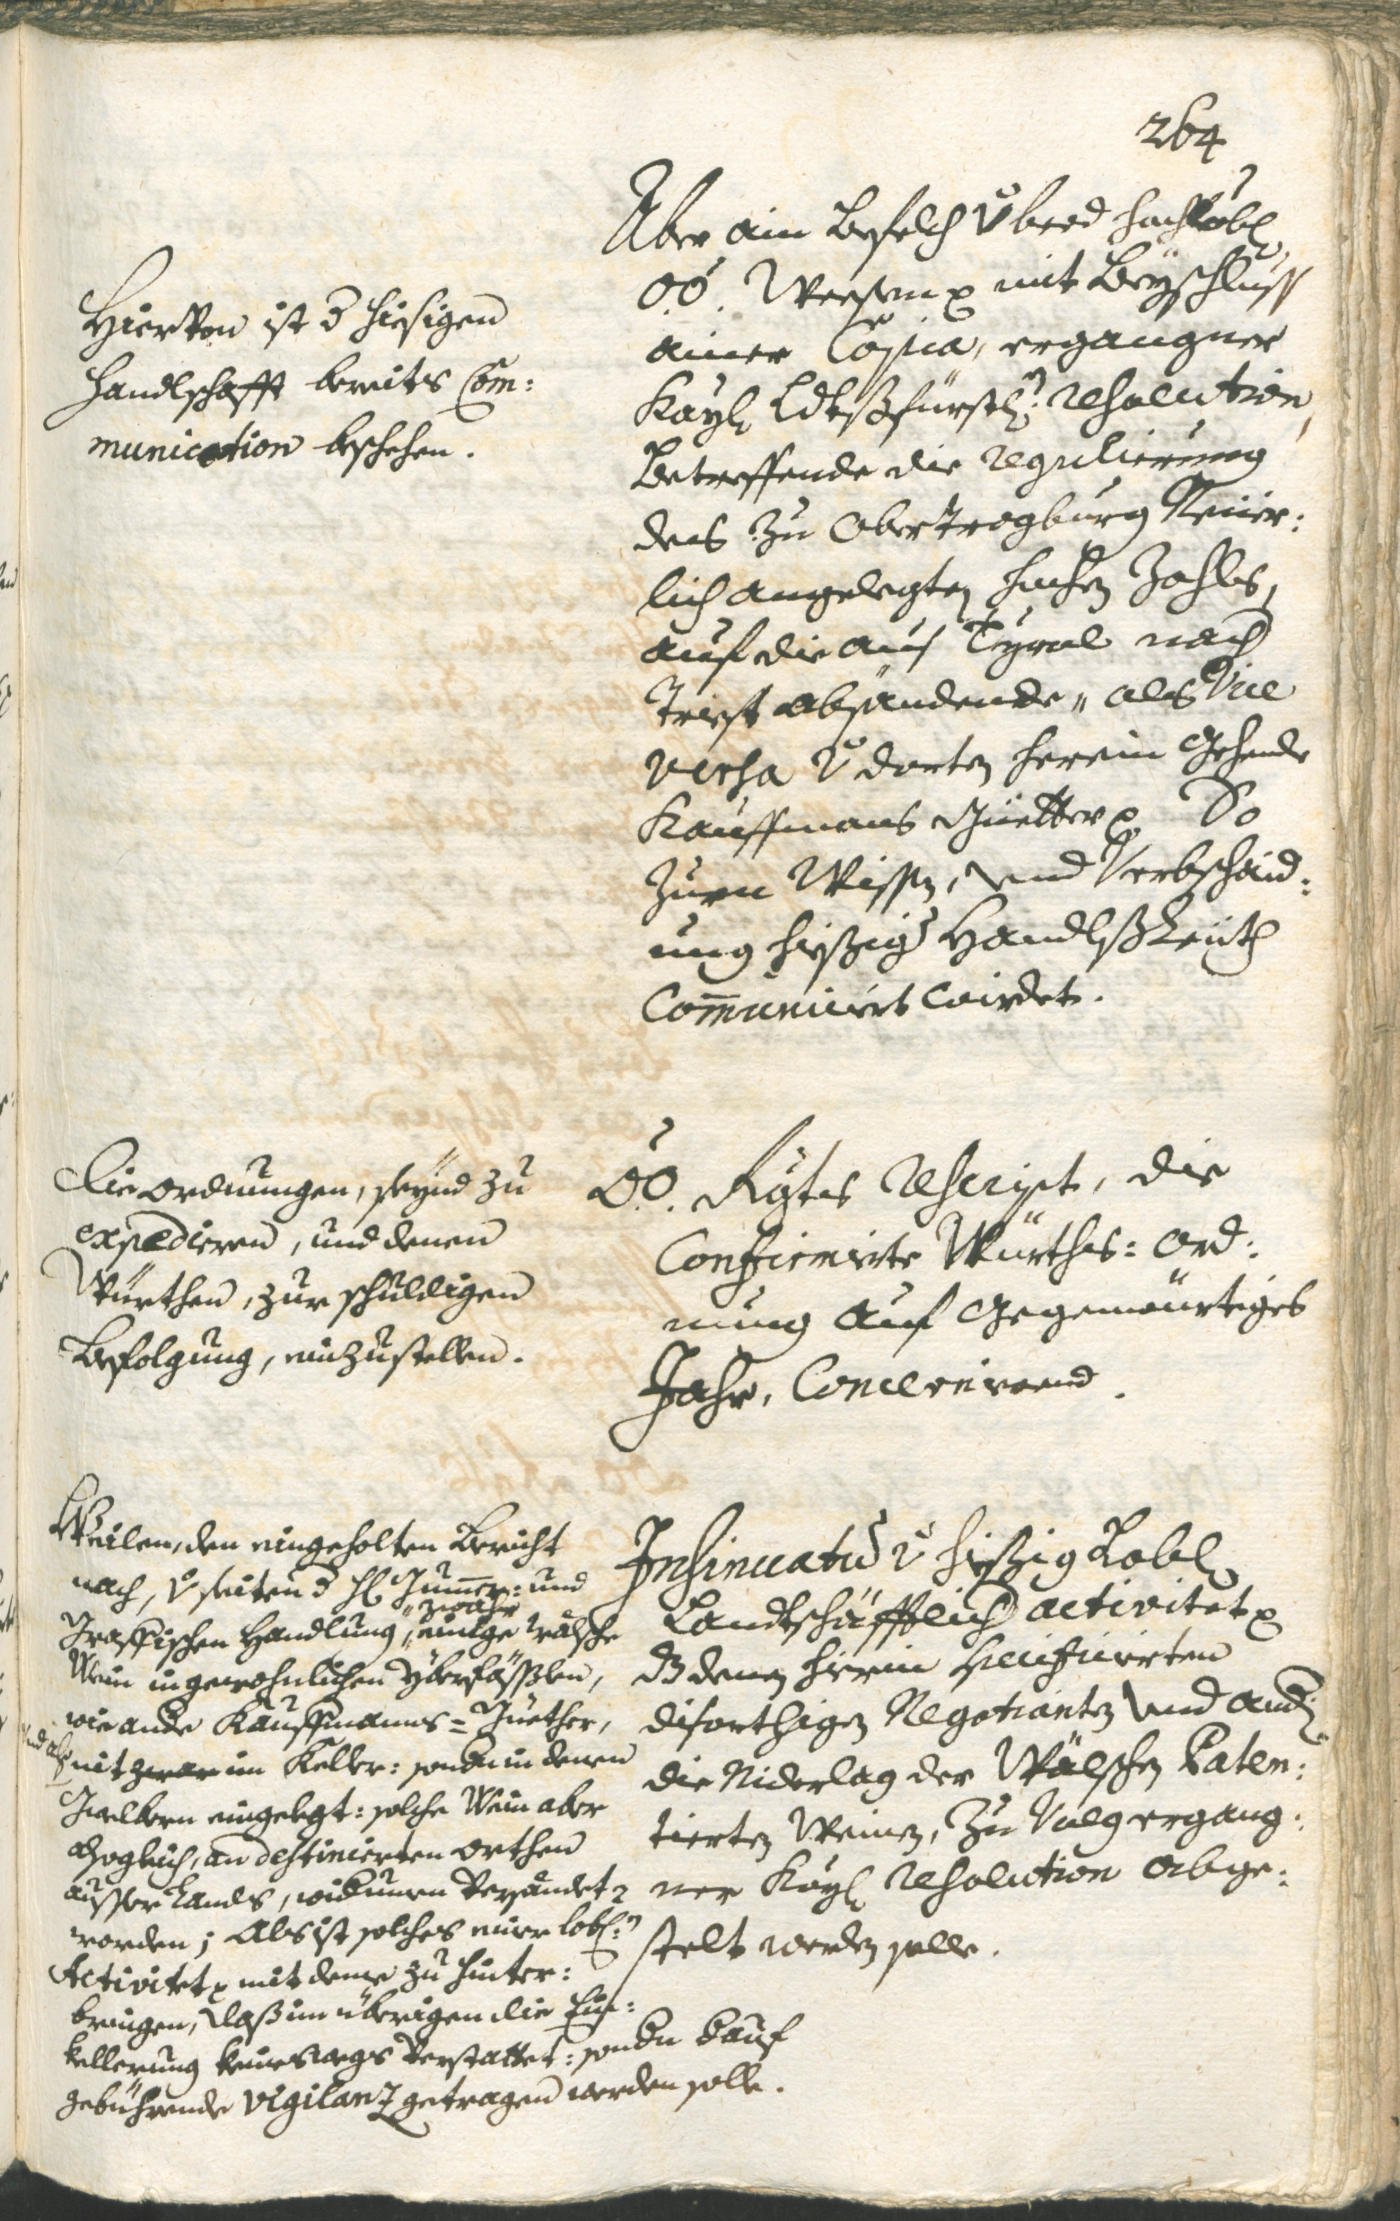 264
Hiervon ist d hiesigen
Handlschafft bereits Com:
munication beschehen.
Über ain Befelch v beed hochlöbl
O.Ö. Weesen mit Beyschluss
ainer Copia, ergangner
Kayl Ldtsfürstl: resolution,
Betreffende die regulierung
des zu Obertrogburg Neüer:
lich angelegten hochen Zohls,
auf die aus Tyrol nach
Triest absändende, als Vice
versa v dorten herein gehende
Kauffmans Güetter So
zum Wissen, und Verbschaid:
ung hießiger Handlsleüth
Communiciert wirdet.
Die ordnungen, seynd zu
expedieren, und denen
Würthen, zur schuldigen
Befolgung, einzustellen.
O.Ö. Rgts rescript, die
Confirmirte Würths: ord:
nung auf Gegenwürtiges
Jahr, Concernirend.
Weilen, den eingeholten Bericht
nach, v seiten d H und
Handlung, zwahr einige wälsche
Wein in gewohnlichen Überfässlen,
wie ande Kauffmanns= Güether,
und als nit zwar im Keller: sondn in denen
Gwelbern eingelegt: solche Wein aber
sogleich, an destinierten orthen
ausser Lands, widerumen versendet
worden; Als ist solches einer lobl:
Activitet mit deme zu hinter:
bringen, dass im überigen die Ein:
kellerung keinesweegs verstattet: sondn darauf
gebührende vigilanz getragen werden solle.
Insinuatum v hießig Lobl
Landtschäfftlich activitet
dz denen hierin specificierten
disorthigen Negotianten und andn
die Niderlag der Wälschen Paten:
tierten Weinen, zu Volg ergang:
ner Kayl resolution abge:
stelt werden solle.